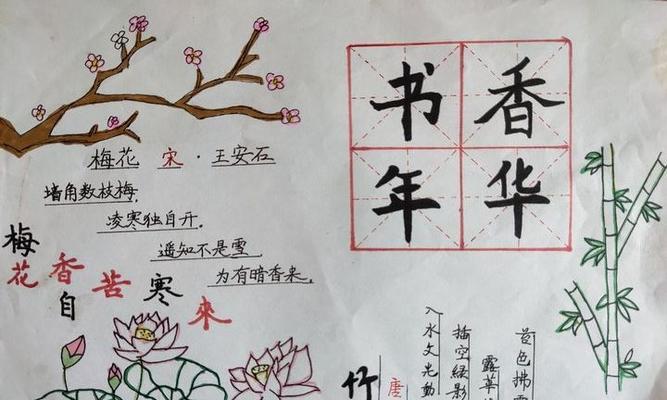 梅花 宋·王安石
墙角数枝梅,
凌寒独自开。
遥知不是雪,
为有暗香来。
梅花香自苦寒來
书香
年华
竹
唐
入水文光動
抽空緑影
露華
苔色拂